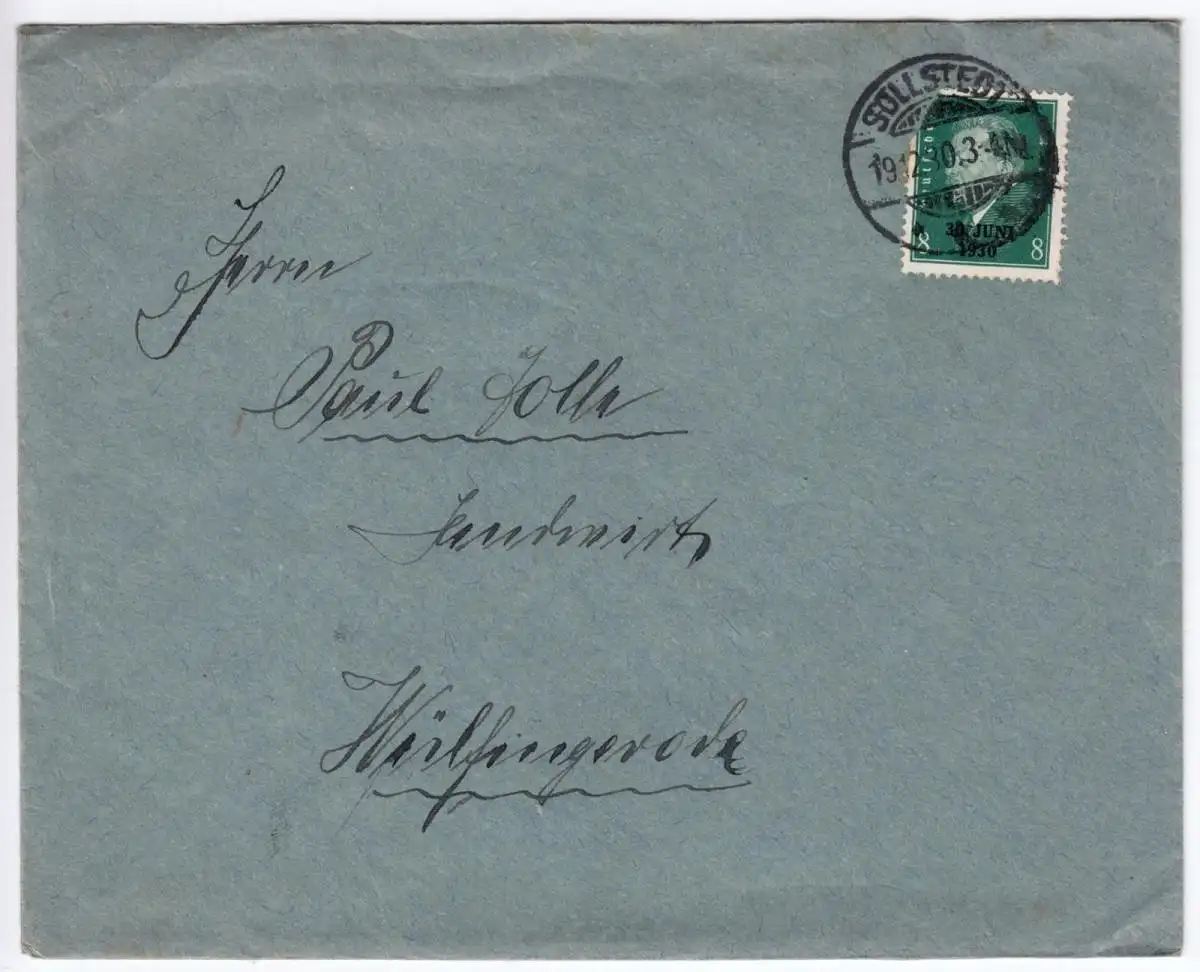 SOLLSTEDT
19.12.30.3-4N.
8 30. JUNI 8
1930
Herrn
Paul Jolle
Landwirt
Wülfingerode